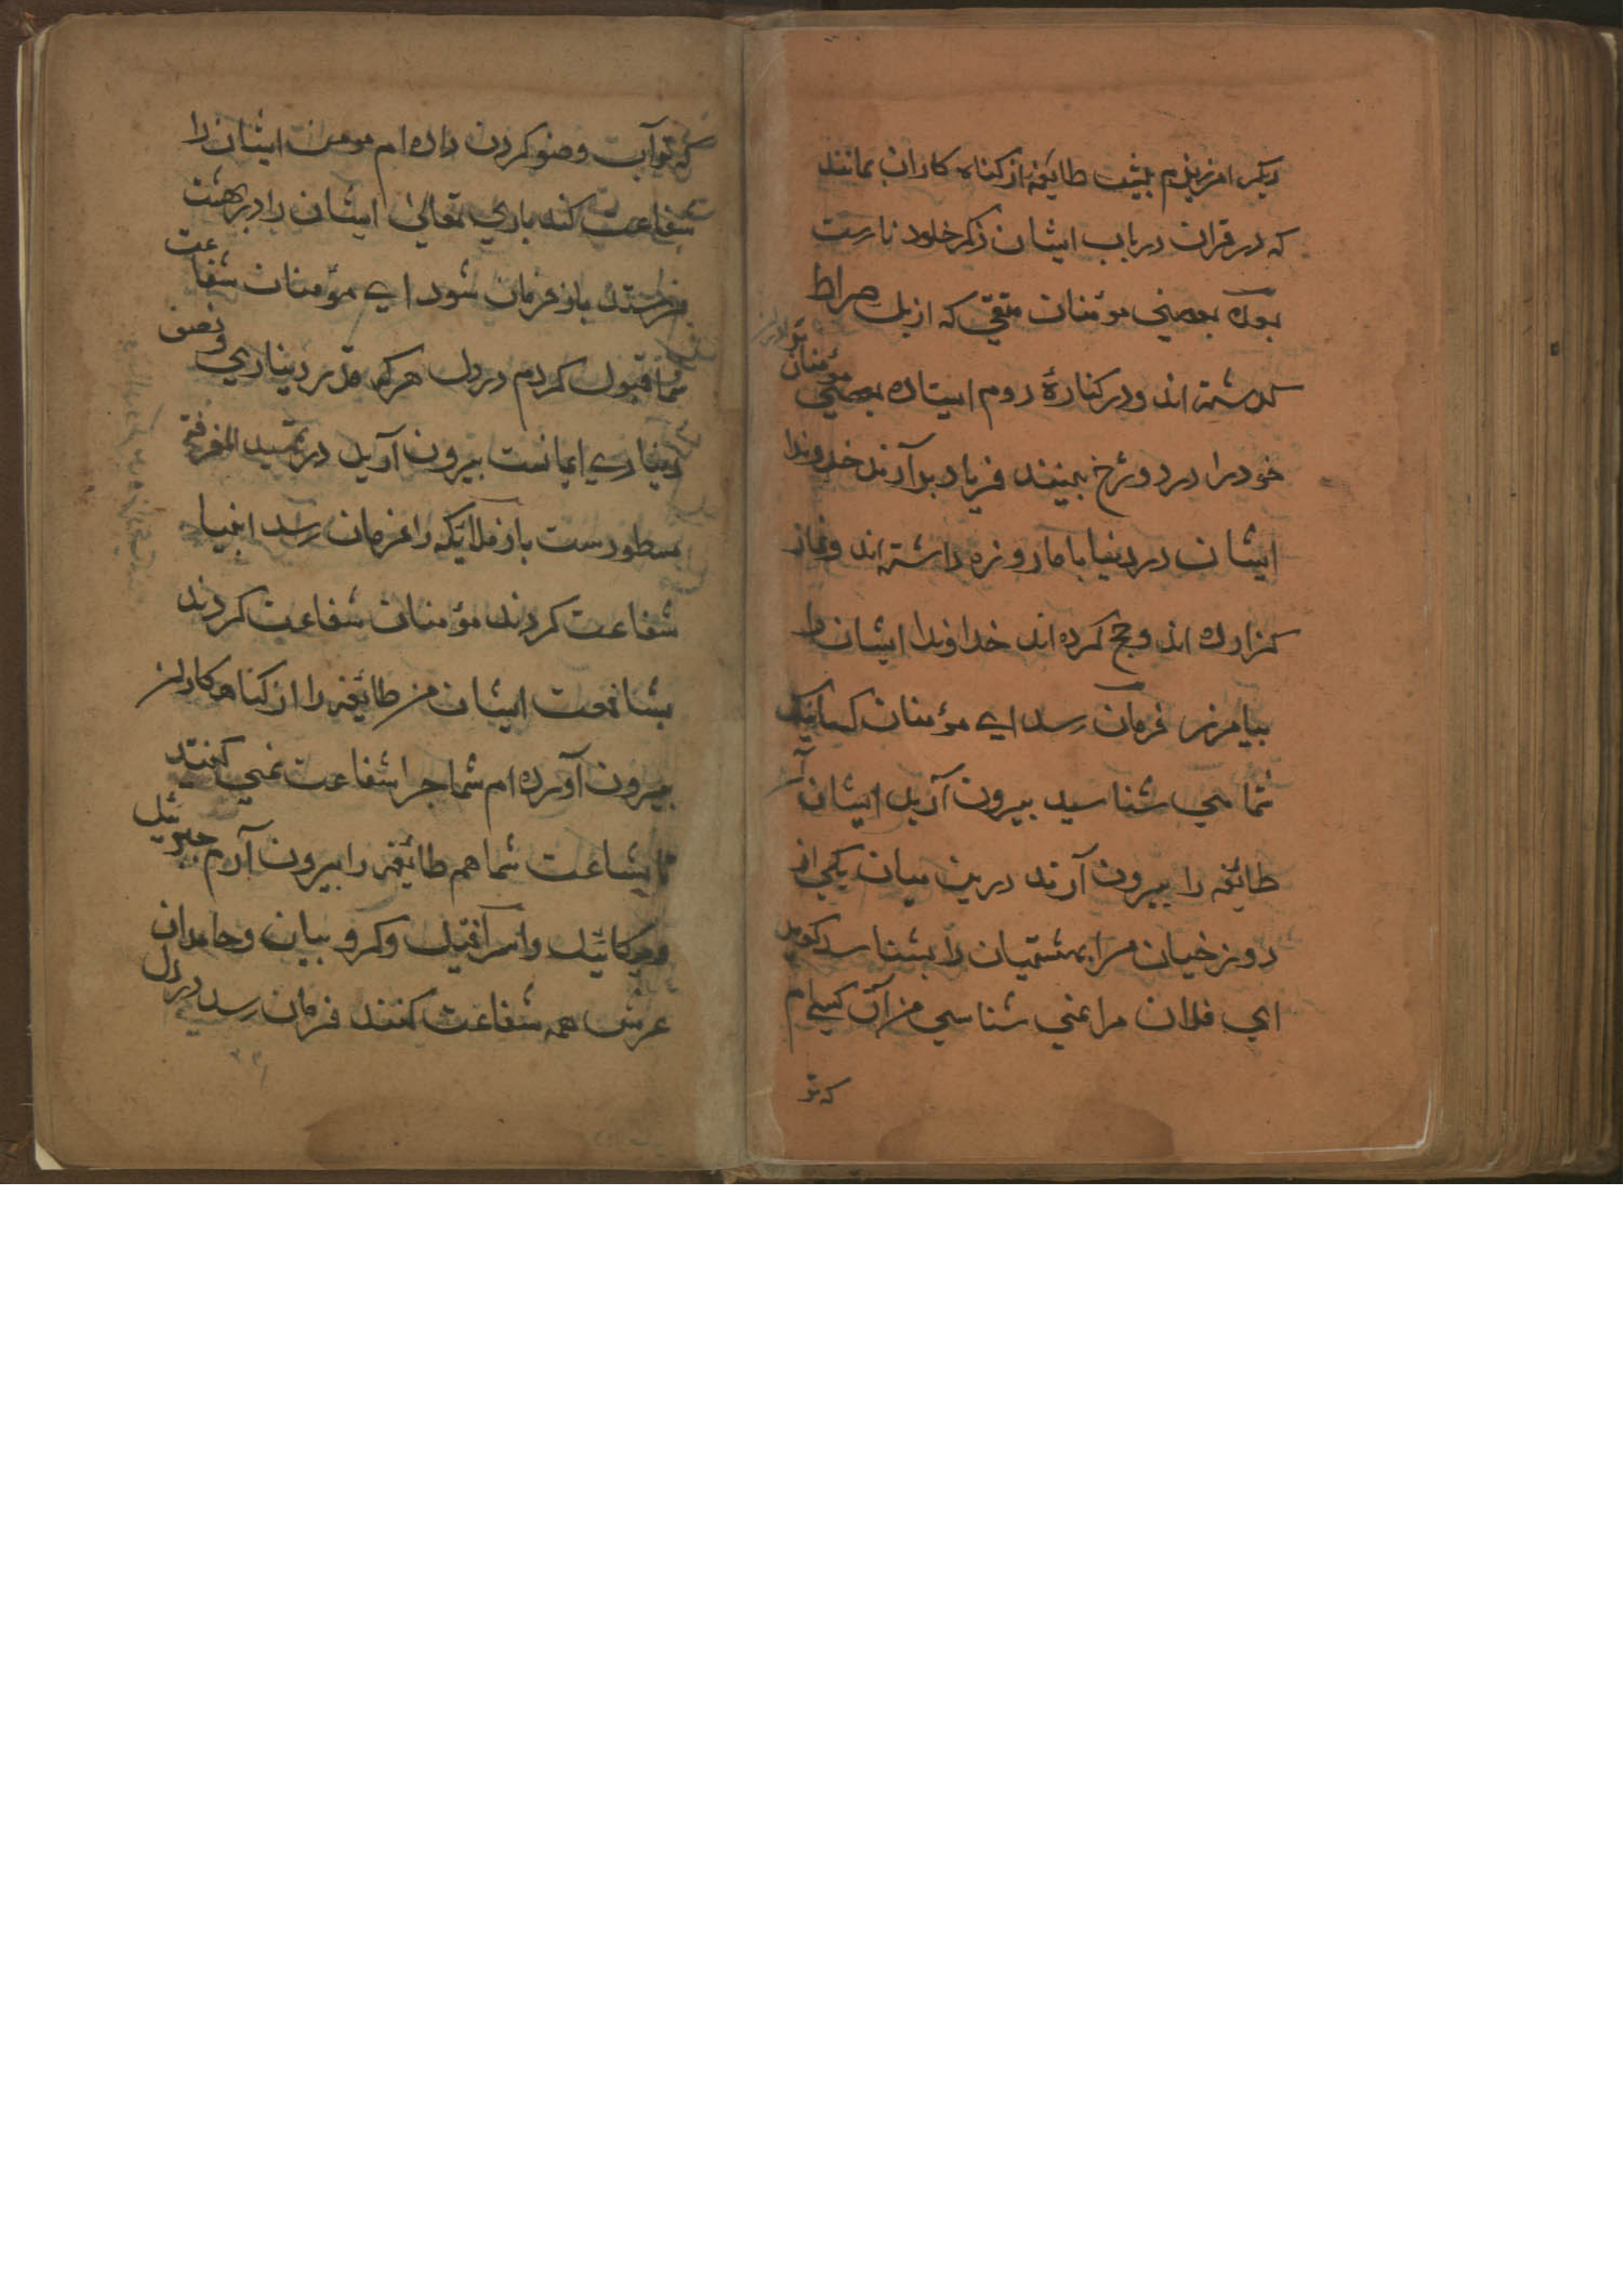 دیکر امرزیدم بنشیت طایفه از کناه کاران بمانند
که در قران در باب ایشان ذکر خلود نارست
بود بعضی مؤمنان متقی که از پل صراط
کذشته اند و در کنارۀ دوم ایستاده بعضی مؤمنان
خود را در دوزخ ببینند فریاد برآرند خداوندا
ایشان در دنیا با ما روزه داشته اند و نماز
کزارده اند و حج کرده اند خداوندا ایشان را
بیامرز فرمان رسد ای مؤمنان کسانیکه
شما می شناسید بیرون آرید ایشان
طائفه را بیرون آرند درین میان یکی از
دوزخیان مرا بهشتیان را بشناسد کوید
ای فلان مرا نمی شناسی من آن کسی ام
که تو
که تو آب وضو کردن داده ام مومن ایشان را
شفاعت کند باری تعالی ایشان را در بهشت
فرستد باز فرمان شود ای مؤمنان شفاعت
شما قبول کردم در دل هر که قدر دیناری و نصف
دیناری ایمانست بیرون آرید در تمهید المعرفة
مسطورست باز ملائکه را فرمان رسد انبیا
شفاعت کردند مؤمنان شفاعت کردند
بشافعت ایشان من طائفه را از کناهکاران
بیرون آورده ام شما چرا شفاعت نمی کنند
تا بشاعت شما هم طائفه را بیرون آرم جبرئیل
و میکائیل و اسرافیل و کروبیان و حاملان
عرش همه شفاعت کنند فرمان رسد در دل